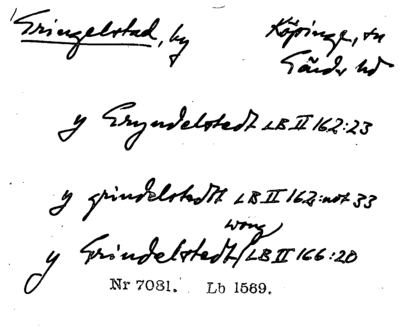 Gringelstad, by Köpinge, sn
Gärds hd
y Gryndelstedt LB II 162:23
y grindelstedtt LB II 162:not 33
wong
y Grindelstedtt/LB II 166:20
Nr 7081. Lb 1569.